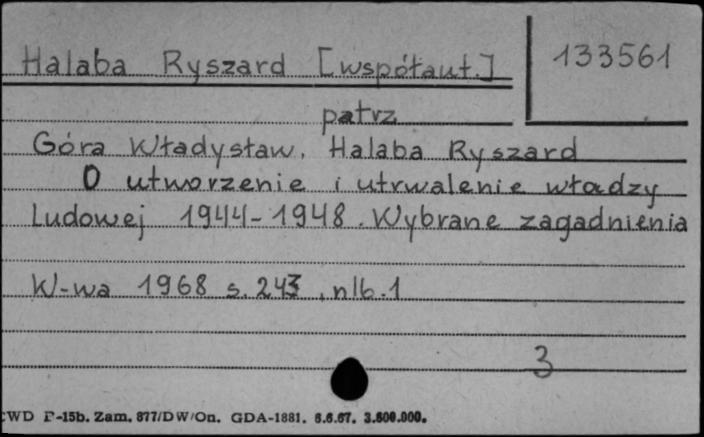 Halaba Ryszard [współaut.] 133561
patrz
Góra Władysław, Halaba Ryszard
O utworzenie i utrwalenie władzy
Ludowej 1944-1948. Wybrane zagadnienia
W-wa 1968 s. 243, nlb. 1
3
CWD P-15b. Zam. 877/DW/On. GDA-1881. 6.6.67. 3.600.000.